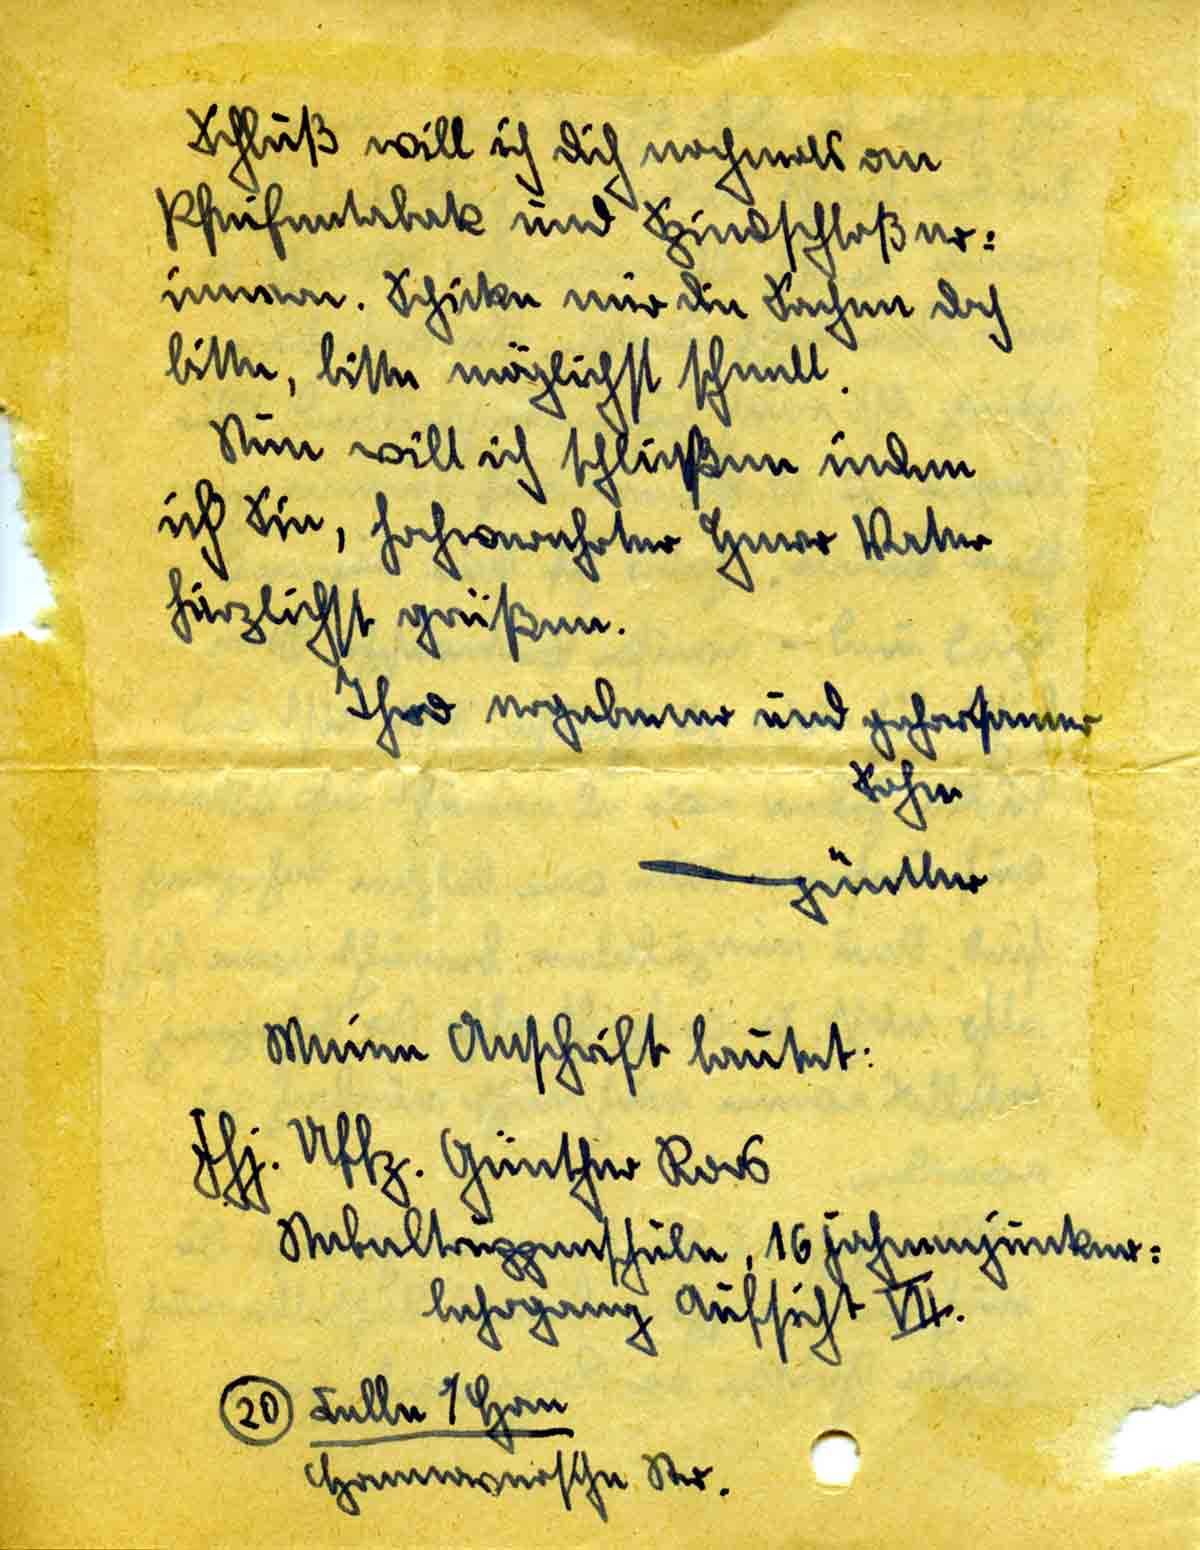 Schluß will ich dich nochmals an
Pfeifentabak und Spindschloß er=
innern. Schicke mir die Sachen doch
bitte, bitte möglichst schnell.
Nun will ich schließen indem
ich Sie, hochverehrter Herr Vater
herzlichst grüßen.
Ihr ergebener und gehorsamer
Sohn
Günther
Meine Anschrift lautet:
Fhj. Uffz. Günther Roos
Nebeltruppenschule, 16 Fahnenjunker=
lehrgang Aufsicht VII.
(20) Celle / Han
Hannoversche Str.